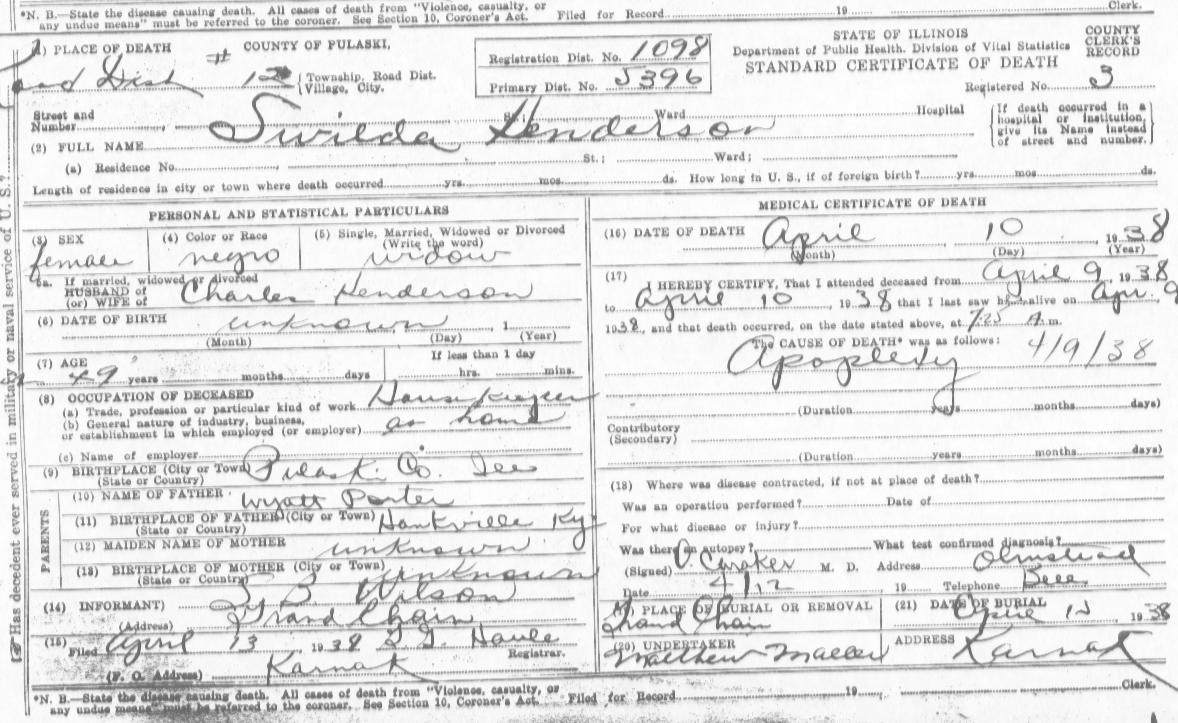 *N. B.—State the disease causing death. All cases of death from "Violence, casualty, or
any undue means" must be referred to the coroner. See Section 10, Coroner's Act. Filed for Record 19 Clerk.
STATE OF ILLINOIS
Department of Public Health. Division of Vital Statistics
STANDARD CERTIFICATE OF DEATH
COUNTY CLERK'S RECORD
Registered No. 3
1) PLACE OF DEATH # COUNTY OF PULASKI,
Road Dist Township, Road Dist. Village, City.
Registration Dist. No. 1098
Primary Dist. No. 5396
Street and Number St.; Ward Hospital
If death occurred in a hospital or institution, give its Name instead of street and number.
(2) FULL NAME Swilda Henderson
(a) Residence No. St.; Ward;
Length of residence in city or town where death occurred yrs. mos. ds. How long in U. S., if of foreign birth? yrs. mos. ds.
Has decedent ever served in military or naval service of U. S.?
PERSONAL AND STATISTICAL PARTICULARS
(3) SEX female
(4) Color or Race negro
(5) Single, Married, Widowed or Divorced (Write the word) widow
5a. If married, widowed or divorced
HUSBAND of
(or) WIFE of Charles Henderson
(6) DATE OF BIRTH unknown, 1
(Month) (Day) (Year)
(7) AGE 49 years months days
If less than 1 day
hrs. mins.
(8) OCCUPATION OF DECEASED
(a) Trade, profession or particular kind of work Housekeeper
(b) General nature of industry, business,
or establishment in which employed (or employer) home
(c) Name of employer
(9) BIRTHPLACE (City or Town) Pulaski Co.
(State or Country)
PARENTS
(10) NAME OF FATHER Wyatt Porter
(11) BIRTHPLACE OF FATHER (City or Town) Ky
(State or Country)
(12) MAIDEN NAME OF MOTHER unknown
(13) BIRTHPLACE OF MOTHER (City or Town) unknown
(State or Country)
(14) INFORMANT) Wilson
(Address) Grand Chain
(15) Filed April 13, 1938 Registrar.
(P. O. Address) Karnak
MEDICAL CERTIFICATE OF DEATH
(16) DATE OF DEATH April 10, 1938
(Month) (Day) (Year)
(17) I HEREBY CERTIFY, That I attended deceased from April 9, 1938
to April 10, 1938 that I last saw h alive on Apr. 9
1938, and that death occurred, on the date stated above, at 7:25 A.m.
The CAUSE OF DEATH* was as follows:
Apoplexy 4/9/38
(Duration years months days)
Contributory
(Secondary)
(Duration years months days)
(18) Where was disease contracted, if not at place of death?
Was an operation performed? Date of
For what disease or injury?
Was there an autopsy? What test confirmed diagnosis?
(Signed) M. D. Address Olmstead
Date 12 19 Telephone
(19) PLACE OF BURIAL OR REMOVAL Grand Chain
(21) DATE OF BURIAL 1938
(20) UNDERTAKER Matthew
ADDRESS Karnak
*N. B.—State the disease causing death. All cases of death from "Violence, casualty, or
any undue means" must be referred to the coroner. See Section 10, Coroner's Act. Filed for Record 19 Clerk.